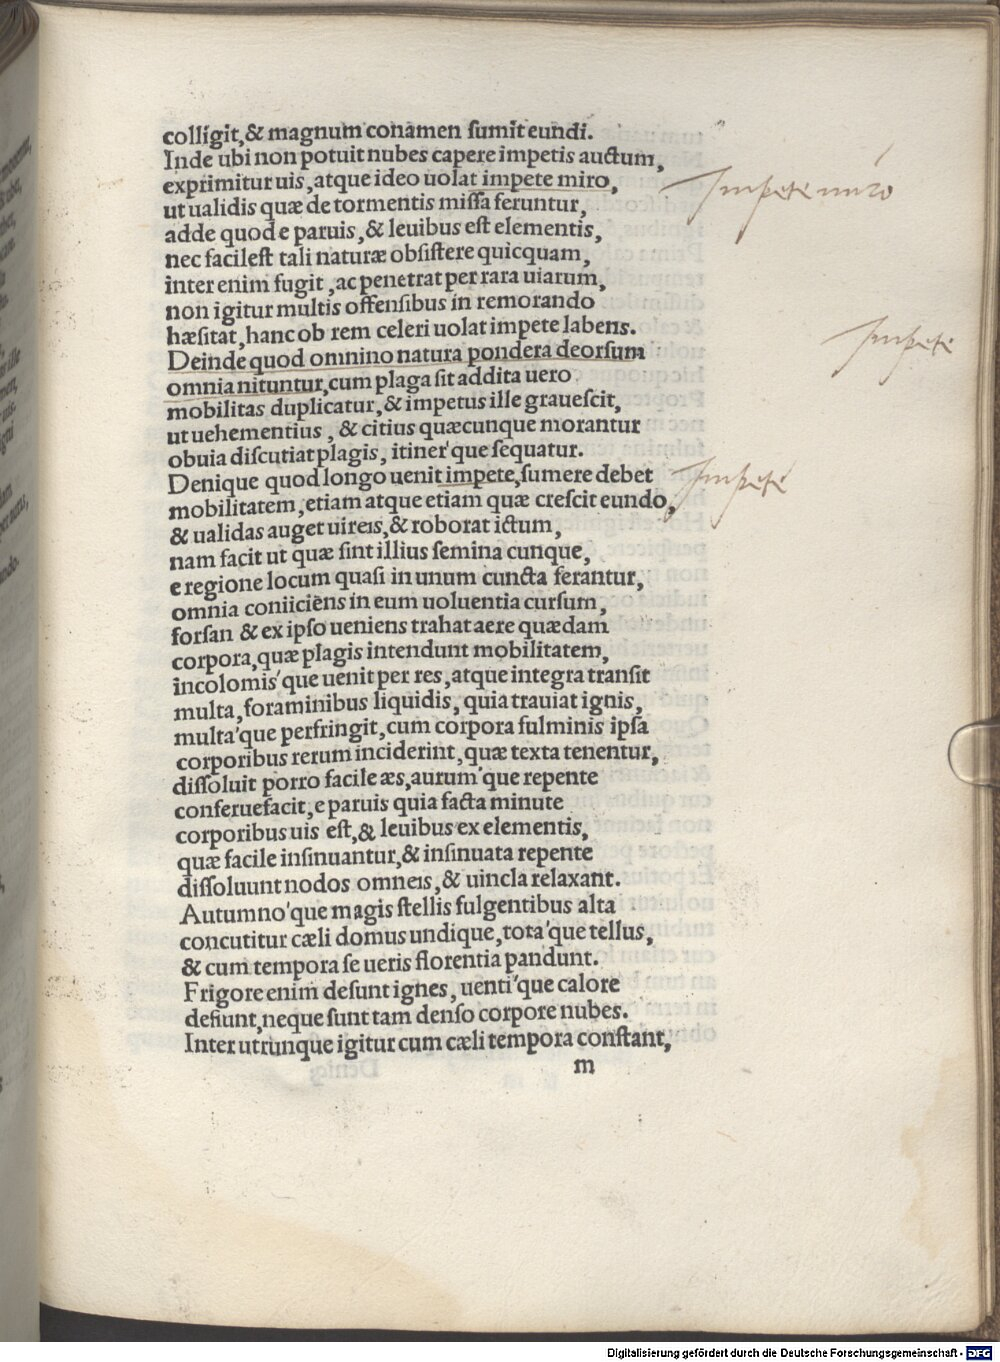 colligit, & magnum conamen sumit eundi.
Inde ubi non potuit nubes capere impetis auctum,
exprimitur uis, atque ideo uolat impete miro,
Impete miro
ut ualidis quæ de tormentis missa feruntur,
adde quod e paruis, & leuibus est elementis,
nec facilest tali naturæ obsistere quicquam,
inter enim fugit, ac penetrat per rara uiarum,
non igitur multis offensibus in remorando
hæsitat, hanc ob rem celeri uolat impete labens.
Impete
Deinde quod omnino natura pondera deorsum
omnia nituntur, cum plaga sit addita uero
mobilitas duplicatur, & impetus ille grauescit,
ut uehementius, & citius quæcunque morantur
obuia discutiat plagis, itiner'que sequatur.
Denique quod longo uenit impete, sumere debet
Impete
mobilitatem, etiam atque etiam quæ crescit eundo,
& ualidas auget uireis, & roborat ictum,
nam facit ut quæ sint illius semina cunque,
e regione locum quasi in unum cuncta ferantur,
omnia coniiciens in eum uoluentia cursum,
forsan & ex ipso ueniens trahat aere quædam
corpora, quæ plagis intendunt mobilitatem,
incolomis'que uenit per res, atque integra transit
multa, foraminibus liquidis, quia trauiat ignis,
multa'que perfringit, cum corpora fulminis ipsa
corporibus rerum inciderint, quæ texta tenentur,
dissoluit porro facile æs, aurum'que repente
conferuefacit, e paruis quia facta minute
corporibus uis est, & leuibus ex elementis,
quæ facile insinuantur, & insinuata repente
dissoluunt nodos omneis, & uincla relaxant.
Autumno'que magis stellis fulgentibus alta
concutitur cæli domus undique, tota'que tellus,
& cum tempora se ueris florentia pandunt.
Frigore enim desunt ignes, uenti'que calore
defiunt, neque sunt tam denso corpore nubes.
Inter utrunque igitur cum cæli tempora constant,
m
Digitalisierung gefördert durch die Deutsche Forschungsgemeinschaft - DFG